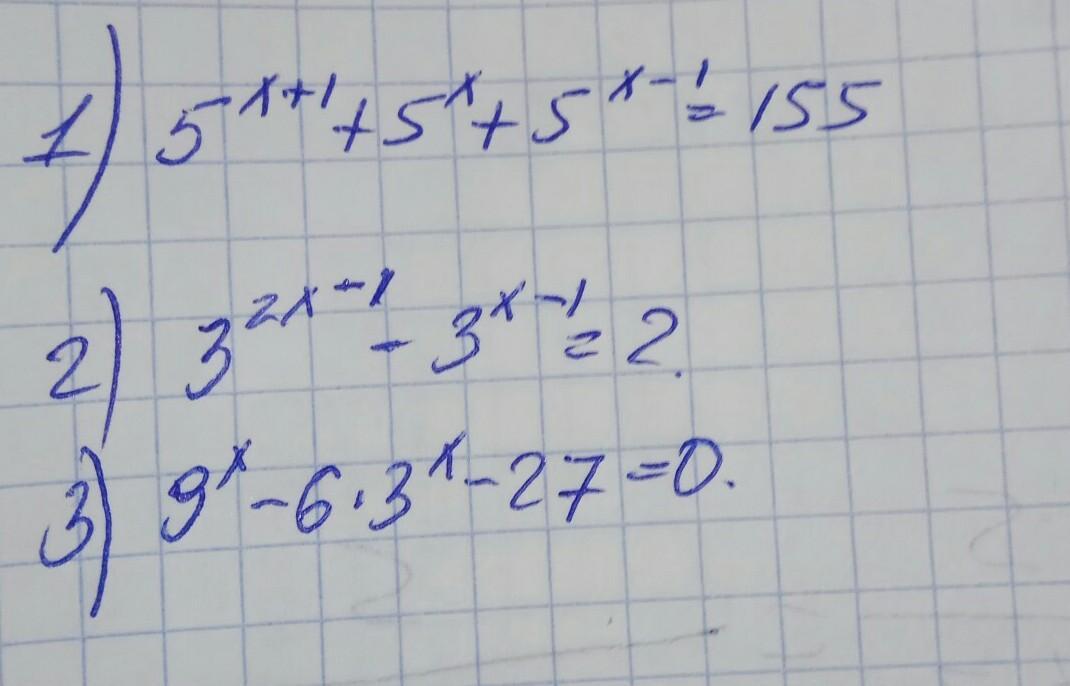 1) 5^{x+1} + 5^x + 5^{x-1} = 155
2) 3^{2x-1} - 3^{x-1} = 2.
3) 9^x - 6·3^x - 27 = 0.